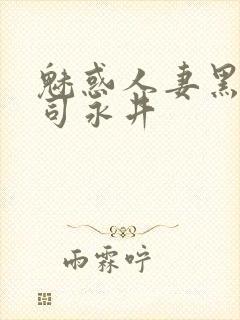 魅惑人妻黑
司永井
雨霖咛